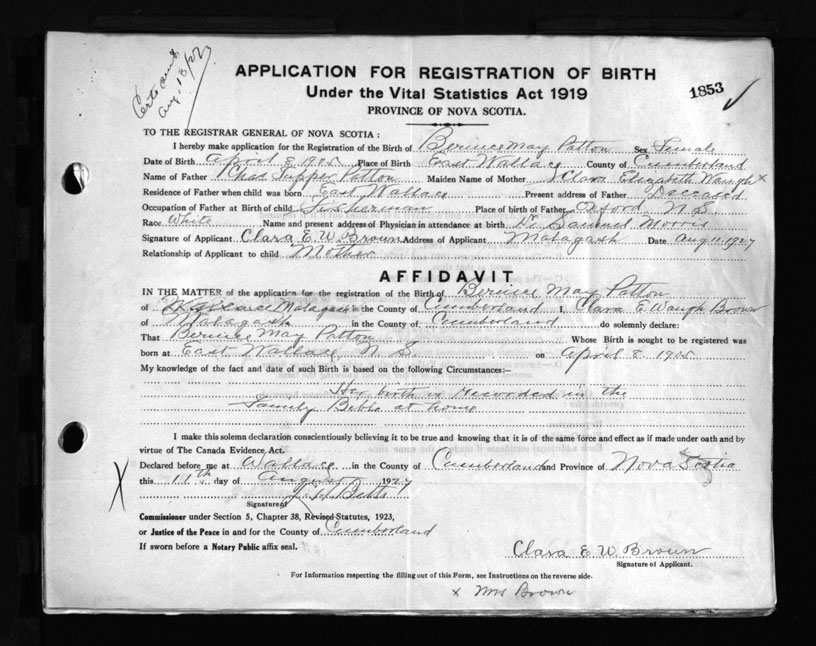 Certs sent
Aug 13/27
APPLICATION FOR REGISTRATION OF BIRTH
Under the Vital Statistics Act 1919
1853
PROVINCE OF NOVA SCOTIA.
TO THE REGISTRAR GENERAL OF NOVA SCOTIA:
I hereby make application for the Registration of the Birth of Bernice May Patton Sex Female
Date of Birth April 8 1905 Place of Birth East Wallace County of Cumberland
Name of Father Chas Tupper Patton Maiden Name of Mother Clara Elizabeth Waugh x
Residence of Father when child was born East Wallace Present address of Father Deceased
Occupation of Father at Birth of child Fisherman Place of birth of Father Oxford N.S.
Race White Name and present address of Physician in attendance at birth Dr Samuel Morris
Signature of Applicant Clara E. W. Brown Address of Applicant Malagash Date Aug 11. 1927
Relationship of Applicant to child Mother
AFFIDAVIT
IN THE MATTER of the application for the registration of the Birth of Bernice May Patton
of Malagash in the County of Cumberland I, Clara E Waugh Brown
of Malagash in the County of Cumberland do solemnly declare:
That Bernice May Patton Whose Birth is sought to be registered was
born at East Wallace, N. S. on April 8. 1905
My knowledge of the fact and date of such Birth is based on the following Circumstances:—
Her birth is recorded in the
Family Bible at home
I make this solemn declaration conscientiously believing it to be true and knowing that it is of the same force and effect as if made under oath and by
virtue of The Canada Evidence Act.
Declared before me at Wallace in the County of Cumberland and Province of Nova Scotia
this 11th day of August 1927
X
Betts
Signature of
Commissioner under Section 5, Chapter 38, Revised Statutes, 1923,
or Justice of the Peace in and for the County of Cumberland
If sworn before a Notary Public affix seal.
Clara E. W Brown
Signature of Applicant.
For Information respecting the filling out of this Form, see Instructions on the reverse side.
x Mrs Brown